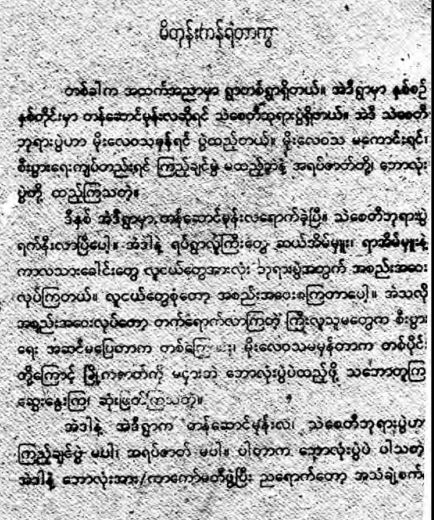 မိတုန်းကန်ရံတာကွ
တစ်ခါက အထက်အညာမှာ ရွာတစ်ရွာရှိတယ်။ အဲဒီရွာမှာ နှစ်စဉ်
နှစ်တိုင်းမှာ တန်ဆောင်မုန်းလဆိုရင် သဲစေတီဘုရားပွဲရှိတယ်။ အဲဒီ သဲစေတီ
ဘုရားပွဲဟာ မိုးလေဝသမှန်ရင် ပွဲထည့်တယ်။ မိုးလေဝသ မကောင်းရင်၊
စီးပွားရေးကျပ်တည်းရင် ကြည့်ချင်ပွဲ မထည့်ဘဲနဲ့ အရပ်ဇာတ်တို့၊ ဘောလုံး
ပွဲတို့ ထည့်ကြသတဲ့။
ဒီနှစ် အဲဒီရွာမှာ တန်ဆောင်မုန်းလရောက်ခဲ့ပြီ။ သဲစေတီဘုရားပွဲ
ရက်နီးလာပြီပေါ့။ အဲဒါနဲ့ ရပ်ရွာလူကြီးတွေ ဆယ်အိမ်မှူး၊ ရာအိမ်မှူးနဲ့
ကာလသားခေါင်းတွေ လူငယ်တွေအားလုံး ဘုရားပွဲအတွက် အစည်းအဝေး
လုပ်ကြတယ်။ လူငယ်တွေစုံတော့ အစည်းအဝေးစကြတာပေါ့။ အဲသလို
အစည်းအဝေးလုပ်တော့ တက်ရောက်လာကြတဲ့ ကြီးလူသူမတွေက စီးပွား
ရေး အဆင်မပြေတာက တစ်ကြောင်း၊ မိုးလေဝသမမှန်တာက တစ်ပိုင်း
တို့ကြောင့် မြို့ကဇာတ်ကို မငှားဘဲ ဘောလုံးပွဲပဲထည့်ဖို့ သဘောတူကြ
ဆွေးနွေးကြ၊ ဆုံးဖြတ်ကြသတဲ့။
အဲဒါနဲ့ အဲဒီရွာက တန်ဆောင်မုန်းလ၊ သဲစေတီဘုရားပွဲဟာ
ကြည့်ချင်ပွဲ မပါ၊ အရပ်ဇာတ် မပါ။ ပါတာက ဘောလုံးပွဲပဲ ပါသတဲ့
အဲဒါနဲ့ ဘောလုံးအား/ကာကော်မတီဖွဲ့ပြီး ညရောက်တော့ အသံချဲ့စက်